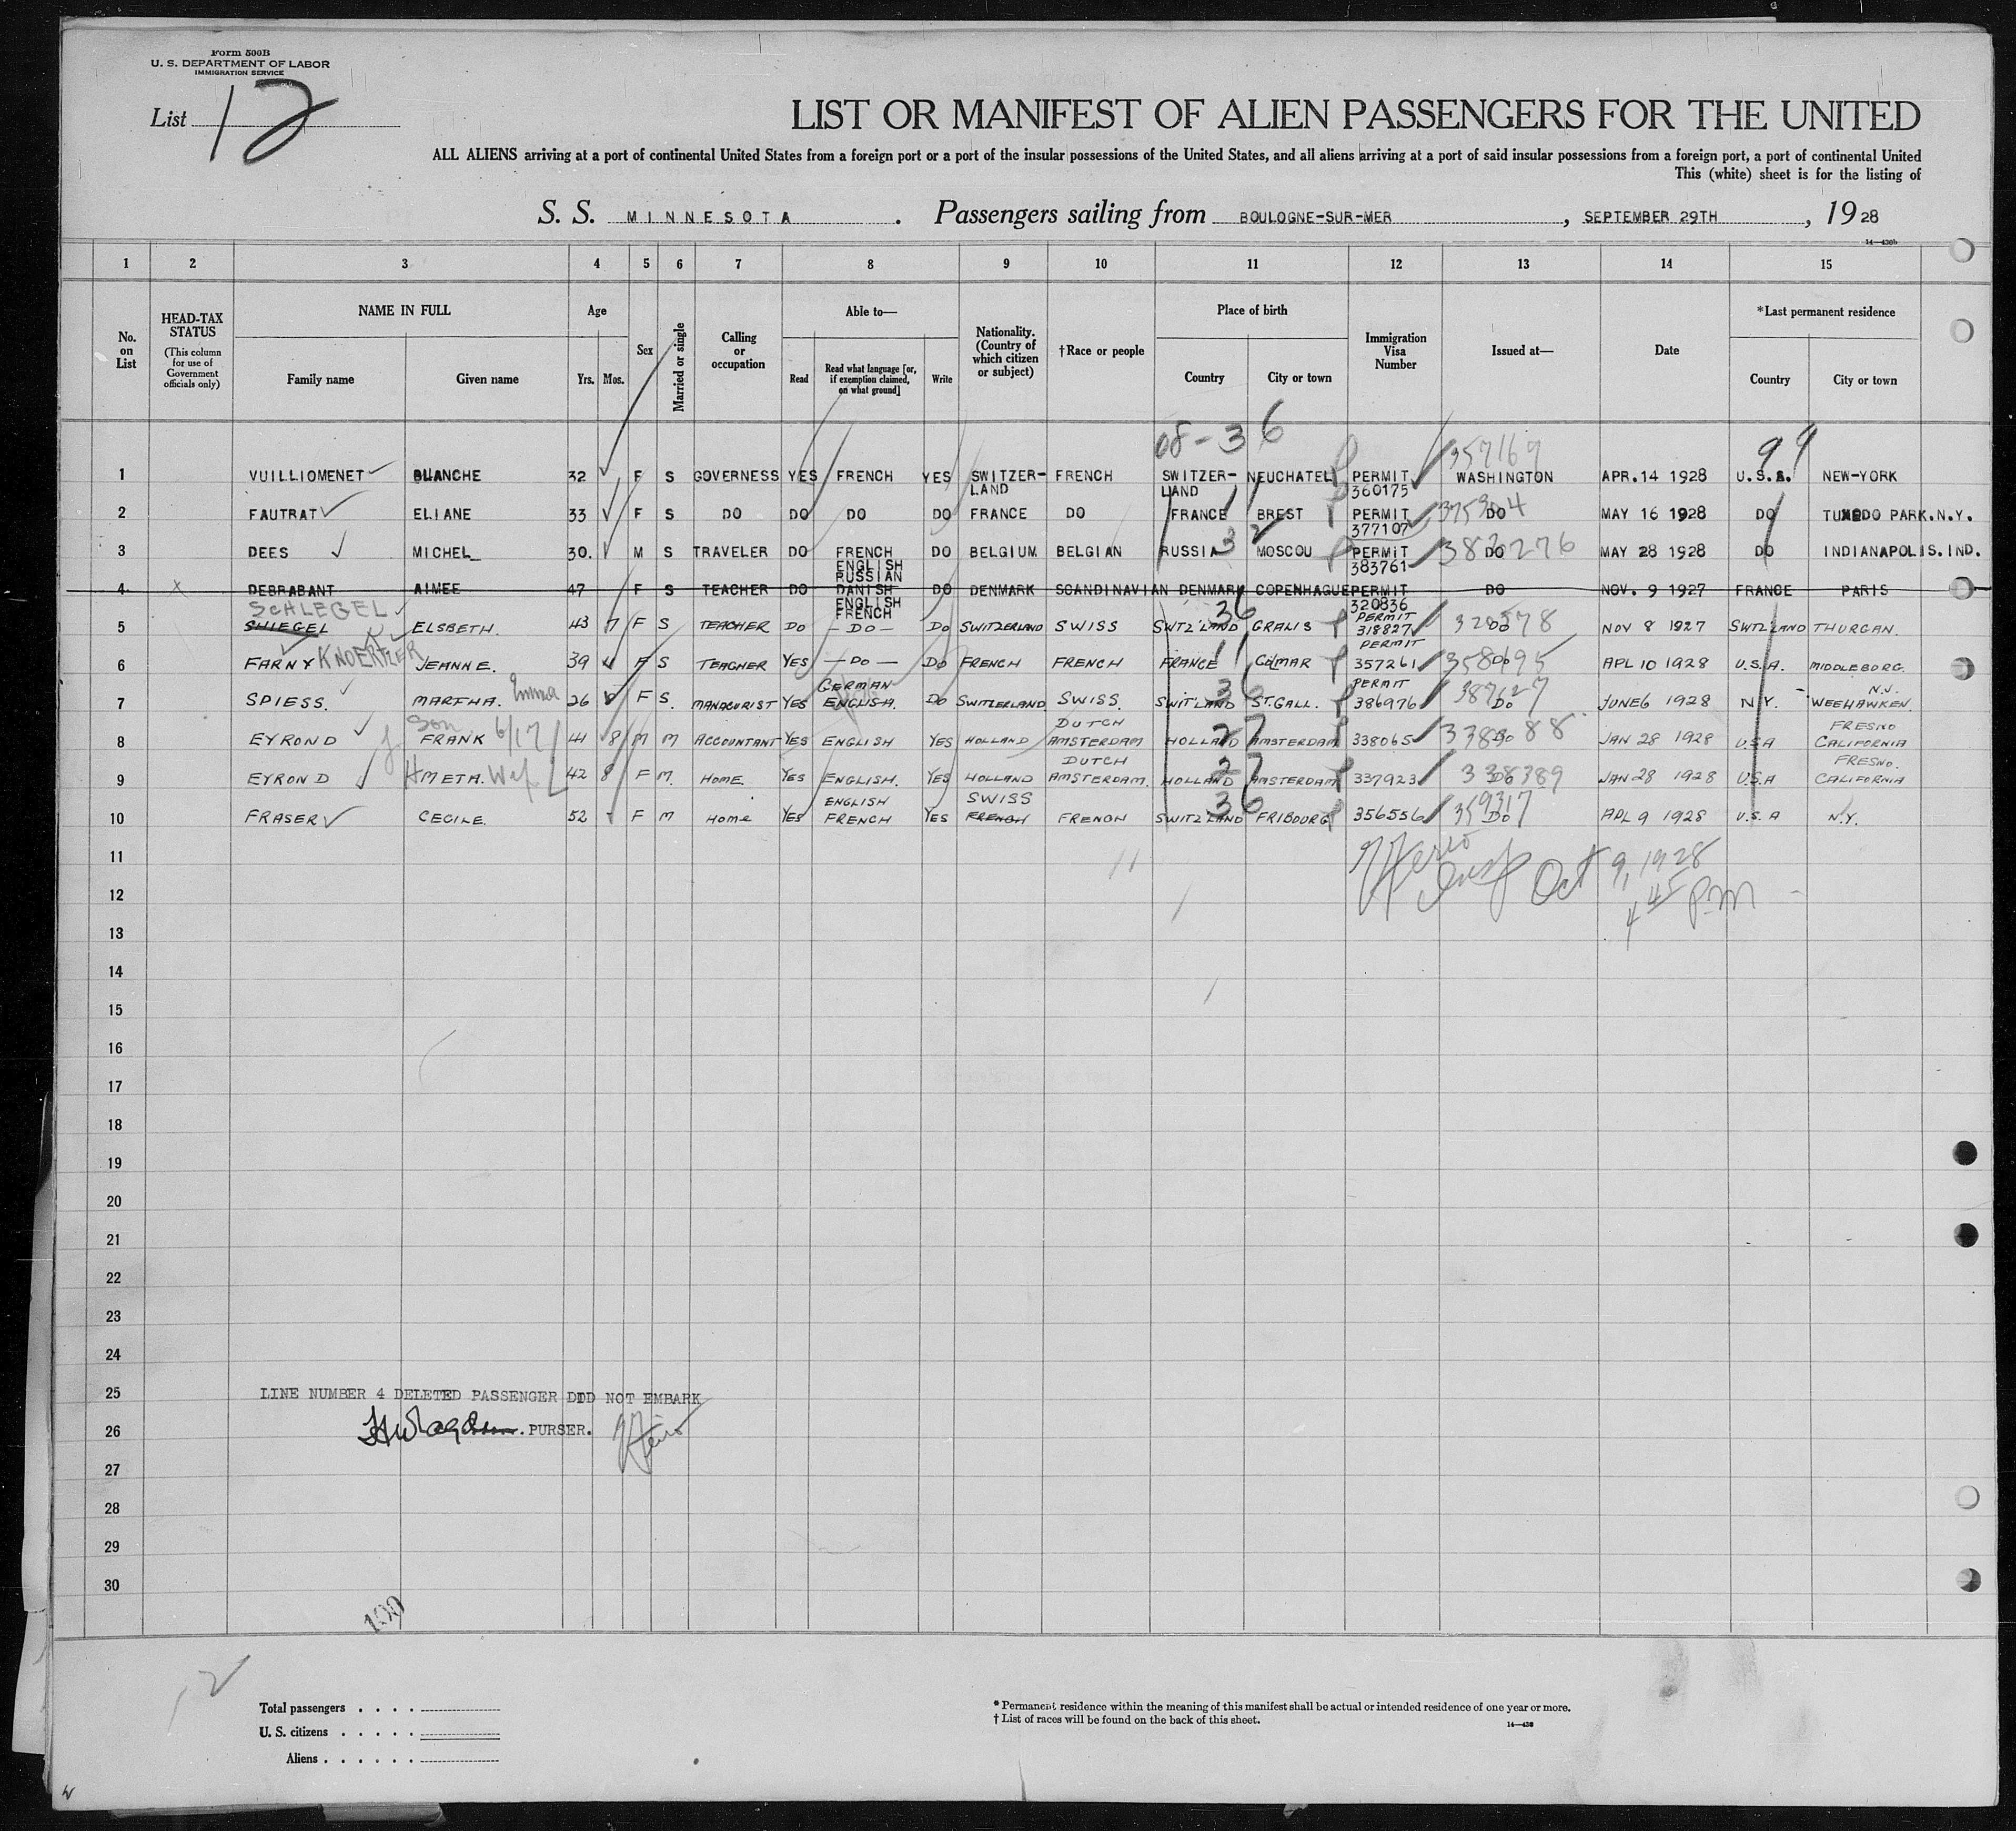 Form 500B
U. S. DEPARTMENT OF LABOR
IMMIGRATION SERVICE
List 12
LIST OR MANIFEST OF ALIEN PASSENGERS FOR THE UNITED
ALL ALIENS arriving at a port of continental United States from a foreign port or a port of the insular possessions of the United States, and all aliens arriving at a port of said insular possessions from a foreign port, a port of continental United
This (white) sheet is for the listing of
S. S. MINNESOTA . Passengers sailing from BOULOGNE-SUR-MER , SEPTEMBER 29TH , 19 28
14—430b
1 2 3 4 5 6 7 8 9 10 11 12 13 14 15
No. on List
HEAD-TAX STATUS (This column for use of Government officials only)
NAME IN FULL Family name Given name
Age Yrs. Mos.
Sex
Married or single
Calling or occupation
Able to— Read Read what language [or, if exemption claimed, on what ground] Write
Nationality. (Country of which citizen or subject)
†Race or people
Place of birth Country City or town
Immigration Visa Number
Issued at—
Date
*Last permanent residence Country City or town
08-36 99
357169
1 VUILLIOMENET BLANCHE 32 F S GOVERNESS YES FRENCH YES SWITZER-LAND FRENCH SWITZER-LAND NEUCHATEL PERMIT 360175 WASHINGTON APR.14 1928 U.S.A. NEW-YORK
2 FAUTRAT ELIANE 33 F S DO DO DO DO FRANCE DO FRANCE BREST PERMIT 377107 DO MAY 16 1928 DO TUXEDO PARK.N.Y.
3 DEES MICHEL 30. M S TRAVELER DO FRENCH ENGLISH RUSSIAN DO BELGIUM BELGIAN RUSSIA MOSCOU PERMIT 383761 DO 383276 MAY 28 1928 DO INDIANAPOLIS.IND.
4 DEBRABANT AIMEE 47 F S TEACHER DO DANISH ENGLISH FRENCH DO DENMARK SCANDINAVIAN DENMARK COPENHAGUE PERMIT 320836 DO NOV. 9 1927 FRANCE PARIS
SCHLEGEL
5 SHIEGEL ELSBETH. 43 7 F S TEACHER DO —DO— DO SWITZERLAND SWISS SWTZ'LAND GRALIS PERMIT 318827 DO NOV 8 1927 SWTZ'LAND THURGAN.
6 FARNY KNOERTZER JEANNE. 39 F S TEACHER YES —DO— DO FRENCH FRENCH FRANCE COLMAR PERMIT 357261 DO APL 10 1928 U.S.A. MIDDLEBORG.
7 SPIESS. MARTHA. Emma 26 8 F S. MANACURIST YES GERMAN ENGLISH. DO SWITZERLAND SWISS. SWIT'LAND ST.GALL. PERMIT 386976 387127 DO JUNE 6 1928 N.Y. N.J. WEEHAWKEN.
8 EYROND FRANK 6/17 41 8 M M ACCOUNTANT YES ENGLISH YES HOLLAND DUTCH AMSTERDAM HOLLAND AMSTERDAM 338065 DO JAN 28 1928 U.S.A FRESNO CALIFORNIA
9 EYROND META. Wif 42 8 F M. HOME YES ENGLISH. YES HOLLAND DUTCH AMSTERDAM. HOLLAND AMSTERDAM 337923 338389 DO JAN 28 1928 U.S.A FRESNO. CALIFORNIA
10 FRASER CECILE. 52 - F M HOME YES ENGLISH FRENCH YES SWISS FRENCH FRENCH SWITZ'LAND FRIBOURG 356556 359317 DO APL 9 1928 U.S.A N.Y.
11
Oct 9, 1928
12
4 45 P.M
13
14
15
16
17
18
19
20
21
22
23
24
25 LINE NUMBER 4 DELETED PASSENGER DID NOT EMBARK
26 . PURSER.
27
28
29
30
100
12
Total passengers . . . .
U. S. citizens . . . . .
Aliens . . . . . .
* Permanent residence within the meaning of this manifest shall be actual or intended residence of one year or more.
† List of races will be found on the back of this sheet.
14—430